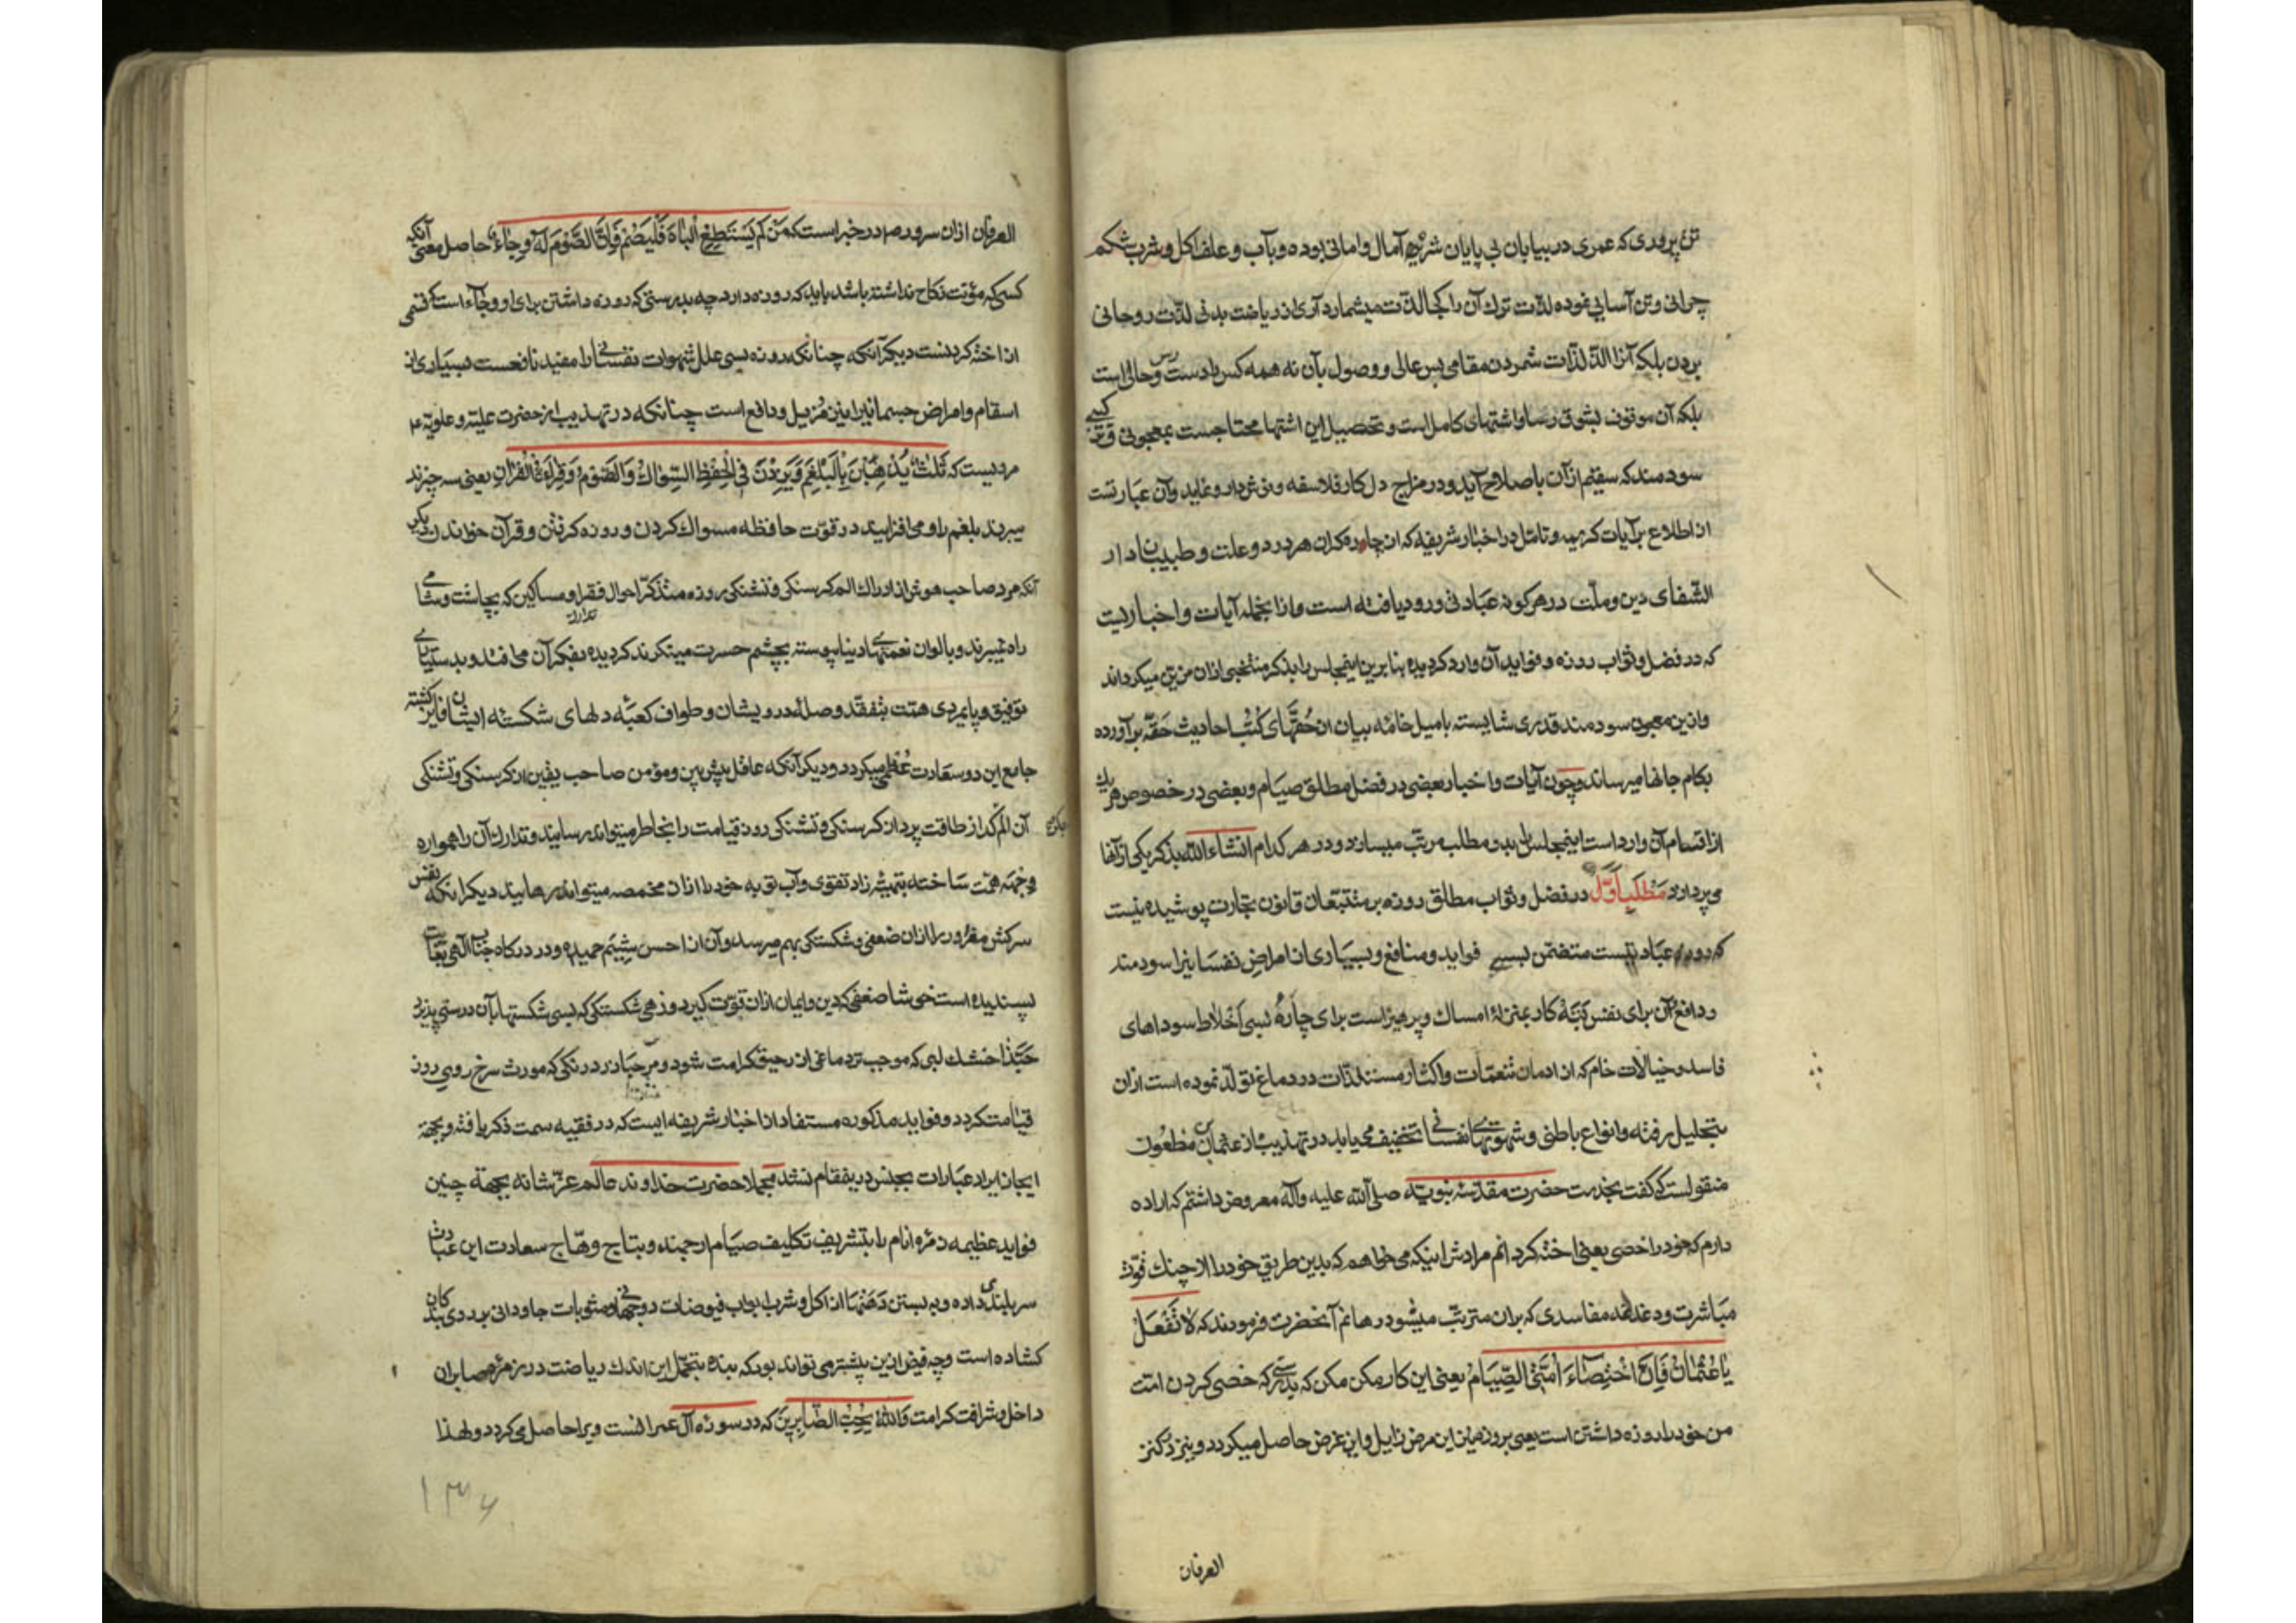 تن پروری که عمری در بیابان بی پایان شره آمال و امانی بوده و بآب و علف اکل و شرب شکم
چرانی و تن آسایی نموده لذت ترك آن را کجا لذت میشمارد آری از ریاضت بدنی لذت روحانی
بردن بلکه آنرا الذّ لذّات شمردن مقامی بس عالی و وصول بآن نه همه کس را دست رس و حالی است
بلکه آن موقوف بشوقی رسا و اشتهای کامل است و تحصیل این اشتها محتاجست بمعجونی
سودمند که سقیم از آن باصلاح آید و در مزاج دل کار فلاسفه و نماید و آن عبارتست
از اطلاع بر آیات کریمه و تامل در اخبار شریفه که از چاره کران هر درد و علت و طبیبان دار
الشفای دین و ملت در هر کونه عبادتی ورود یافته است و از انجمله آیات و اخباریست
که در فضل و ثواب روزه و فواید آن وارد کردیده بنا برین اینمجلس را بذکر منتخبی ازان مزین میکرداند
و ازین معجون سودمند قدری شایسته بامیل خامه بیان از حقهای کتب احادیث حقه برآورده
بکام جانها میرساند و چون آیات و اخبار بعضی در فضل مطلق صیام و بعضی در خصوص هر یك
از اقسام آن وارد است اینمجلس را بدو مطلب مرتب میسازد و در هر کدام انشاء الله بذکر یکی از آنها
می پردازد مطلب اول در فضل و ثواب مطلق روزه بر متتبعان قانون تجارت پوشیده نیست
که روزه عبادتیست متضمن بسی فواید و منافع و بسیاری از امراض نفسانیرا سودمند
و دافع آن برای نفس کار بمنزلهٔ امساك و پرهیز است برای چارهٔ بسی اخلاط سوداهای
فاسد و خیالات خام که از ادمان تنعمات و اکثار مستلذات در دماغ تولد نموده است ازان
بتحلیل رفته و انواع باطنی و شهوتهای نفسانی تخفیف می یابد در تهذیب از عثمان بن مظعون
منقولست که گفت بخدمت حضرت مقدسه نبویه صلی الله علیه و آله معروض داشتم که اراده
دارم که خود را خصی یعنی اخته کردانم مرادش اینکه می خواهم که بدین طریق خود را از چنك قوت
مباشرت و دغدغه مفاسدی که بران مترتب میشود رهانم آنحضرت فرمودند که لا تفعل
یا عثمان فان اختصاء امتی الصیام یعنی این کار مکن مکن که بدرستی که خصی کردن امت
من خود را روزه داشتن است یعنی بروزه این مرض زایل و این غرض حاصل میکردد و نیز در کنز
العرفان
العرفان ازان سرور ص در خبر است که من لم یستطع الباه فلیصم فان الصوم له وجاء حاصل معنی آنکه
کسی که مؤنت نکاح نداشته باشد باید که روزه دارد چه بدرستی که روزه داشتن برای او وجاء است که قسمی
از اخته کردنست دیکر آنکه چنانکه روزه بسی علل شهوات نفسانی را مفید نافعست بسیاری از
اسقام و امراض جسمانیرا نیز مزیل و دافع است چنانکه در تهذیب از حضرت علیه و علویه ع
مرویست که ثلث یذهبن بالبلغم و یزدن فی الحفظ السواك و الصوم و قراءة القران یعنی سه چیزند
میبرند بلغم را و می افزایند در قوت حافظه مسواك کردن و روزه کرفتن و قرآن خواندن دیکر
آنکه مرد صاحب هوش از ادراك الم کرسنکی و تشنکی روزه متذکر احوال فقرا و مساکین که بچاشت و شامی
راه نمیبرند و بالوان نعمتهای دنیا پیوسته بچشم حسرت مینکرند کردیده بفکر تدارك آن می افتد و بدستیاری
توفیق و پایمردی همت بتفقد و صلهٔ درویشان و طواف کعبهٔ دلهای شکسته ایشان فایز کشته
جامع این دو سعادت عظمی میکردد و دیکر آنکه عاقل پیش بین و مؤمن صاحب یقین از کرسنکی و تشنکی
آن الم کداز طاقت پرداز کرسنکی و تشنکی روز قیامت را بخاطر میتواند رسانید و تدارك آن را همواره
وجهه همت ساخته بتهیهٔ زاد تقوی و آب توبه خود را ازان مخمصه میتواند رهانید دیکر آنکه نفس
سرکش مغرور را ازان ضعفی و شکستکی بهم میرسد و آن از احسن شیم حمیده و در درکاه جناب الهی بغایت
پسندیده است خوشا ضعفی که دین و ایمان ازان قوت کیرد و زهی شکستکی که بسی شکستها بآن درستی پذیرد
حبذا خشك لبی که موجب تر دماغی از رحیق کرامت شود و مرحبا زرد رنکی که مورث سرخ رویی روز
قیامت کردد و فواید مذکوره مستفاد از اخبار شریفه ایست که در فقیه سمت ذکر یافته و بجهة
ایجاز ایراد عبارات بجنس درینمقام نشد مجملا حضرت خداوند عالم عز شانه بجهة چنین
فواید عظیمه زمره انام را بتشریف تکلیف صیام ارجمند و بتاج وهاج سعادت این عبادت
سر بلندی داده و به بستن دهنها از اکل و شرب ابواب فیوضات دو جهانی و مثوبات جاودانی بر روی بندکان
کشاده است و چه فیض ازین بیشتر می تواند بود که بنده بتحمل این اندك ریاضت در زمره صابران
داخل و شرافت کرامت والله یحب الصابرین که در سوره آل عمرانست ویرا حاصل می کردد و لهذا
۱۳۶